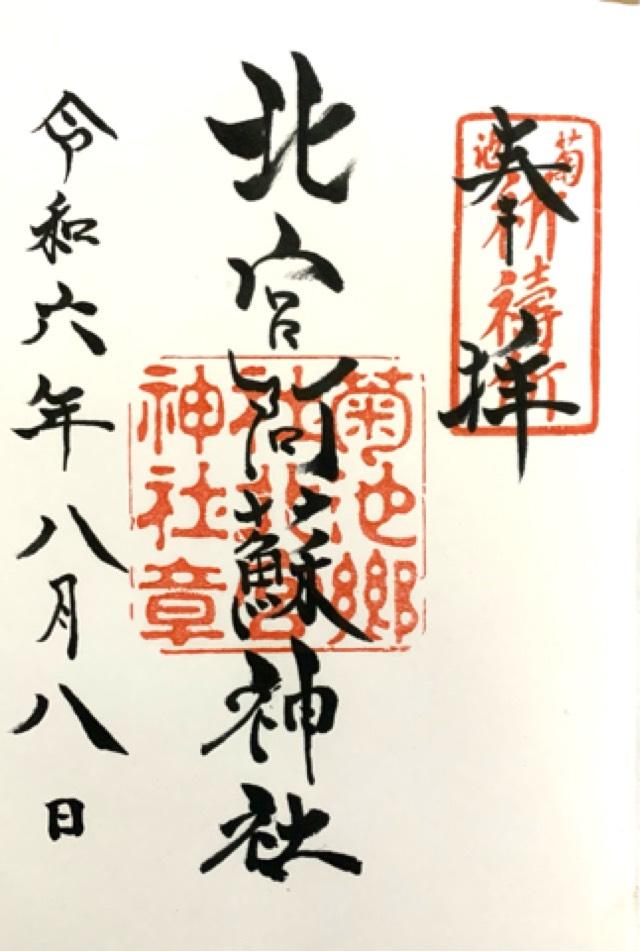 奉拝
菊池
祈禱所
北宮阿蘇神社
菊池郷
社北宮
神社章
令和六年八月八日